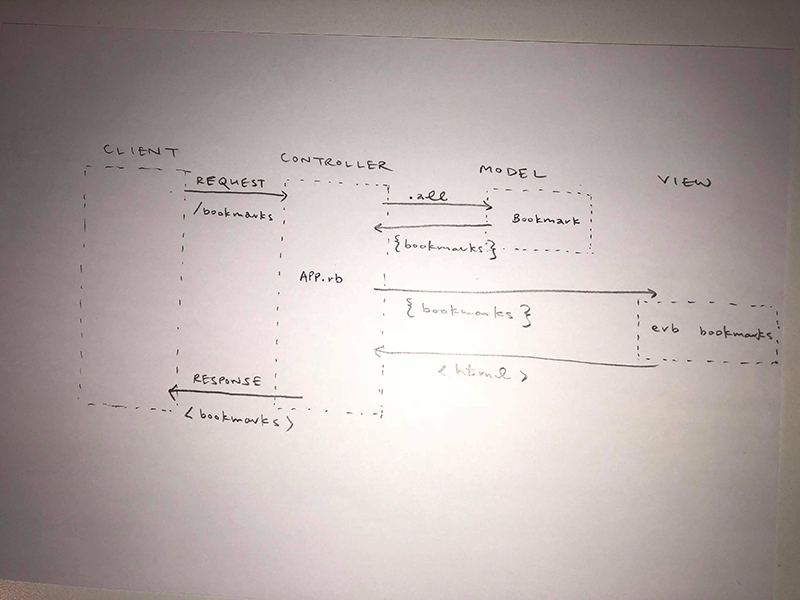 CLIENT
CONTROLLER
MODEL
VIEW
REQUEST
/bookmarks
.all
Bookmark
{bookmarks}
APP.rb
{bookmarks}
erb bookmarks
<html>
RESPONSE
<bookmarks>